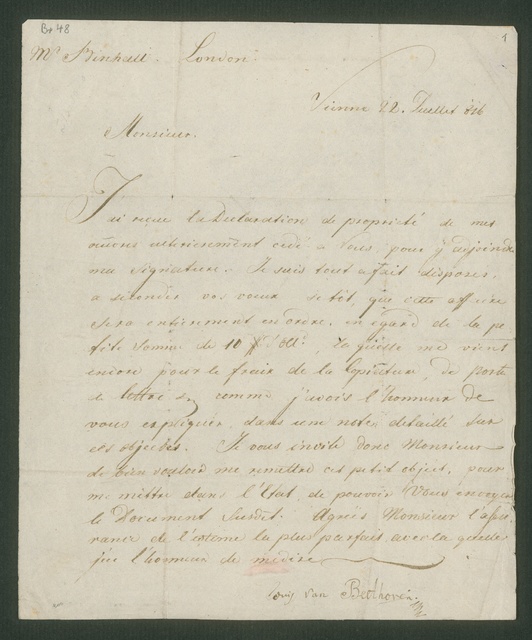 Br 48
1
Mr Birchall. London.
Vienne 22. Juillet 816
Monsieur.
J'ai reçue la Declaration de proprieté de mes
œuvres entierement cedé a Vous pour y adjoindre
ma Signature. Je suis tout a fait disposer
a seconder vos vœux sitôt, que cette affaire
sera entierement en ordre, en egard de la pe
tite somme de 10 ₶ d'or, la quelle me vient
encore pour le fraix de la Copieture, de poste
de lettre &c comme j'avois l'honneur de
vous expliquer dans une note detaillé sur
ces objectes. Je vous invite donc Monsieur
de bien vouloir me remettre ces petit object, pour
me mettre dans l'Etat de pouvoir Vous envoyer
le Document susdit. Agrées Monsieur l'assu
rance de l'estime la plus parfait avec la quelle
j'ai l'honneur de me dire
Louis van Beethoven